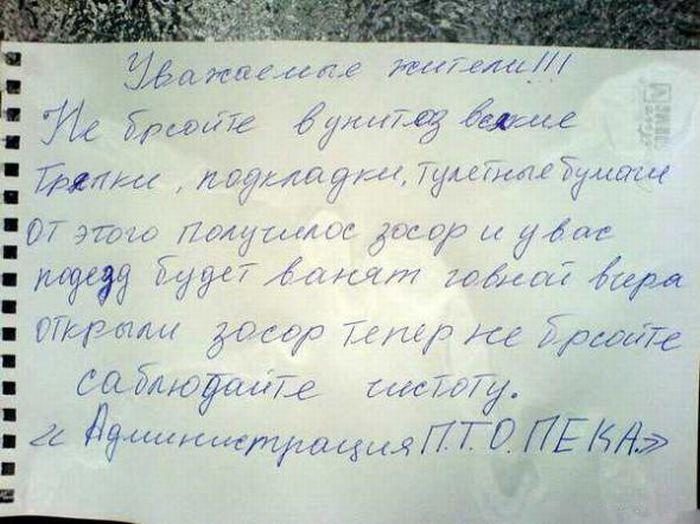 Уважаемые жители!!!
Не брсойте в унитоз всякие
Тряпки, подкладки, тулетные бумаги
от этого получилос зосор и у вас
подезд будет ванят говной вчера
открыли зосор тепер не брсойте
саблюдайте чистоту.
«Администрация П.Т.О.ПЕКА.»